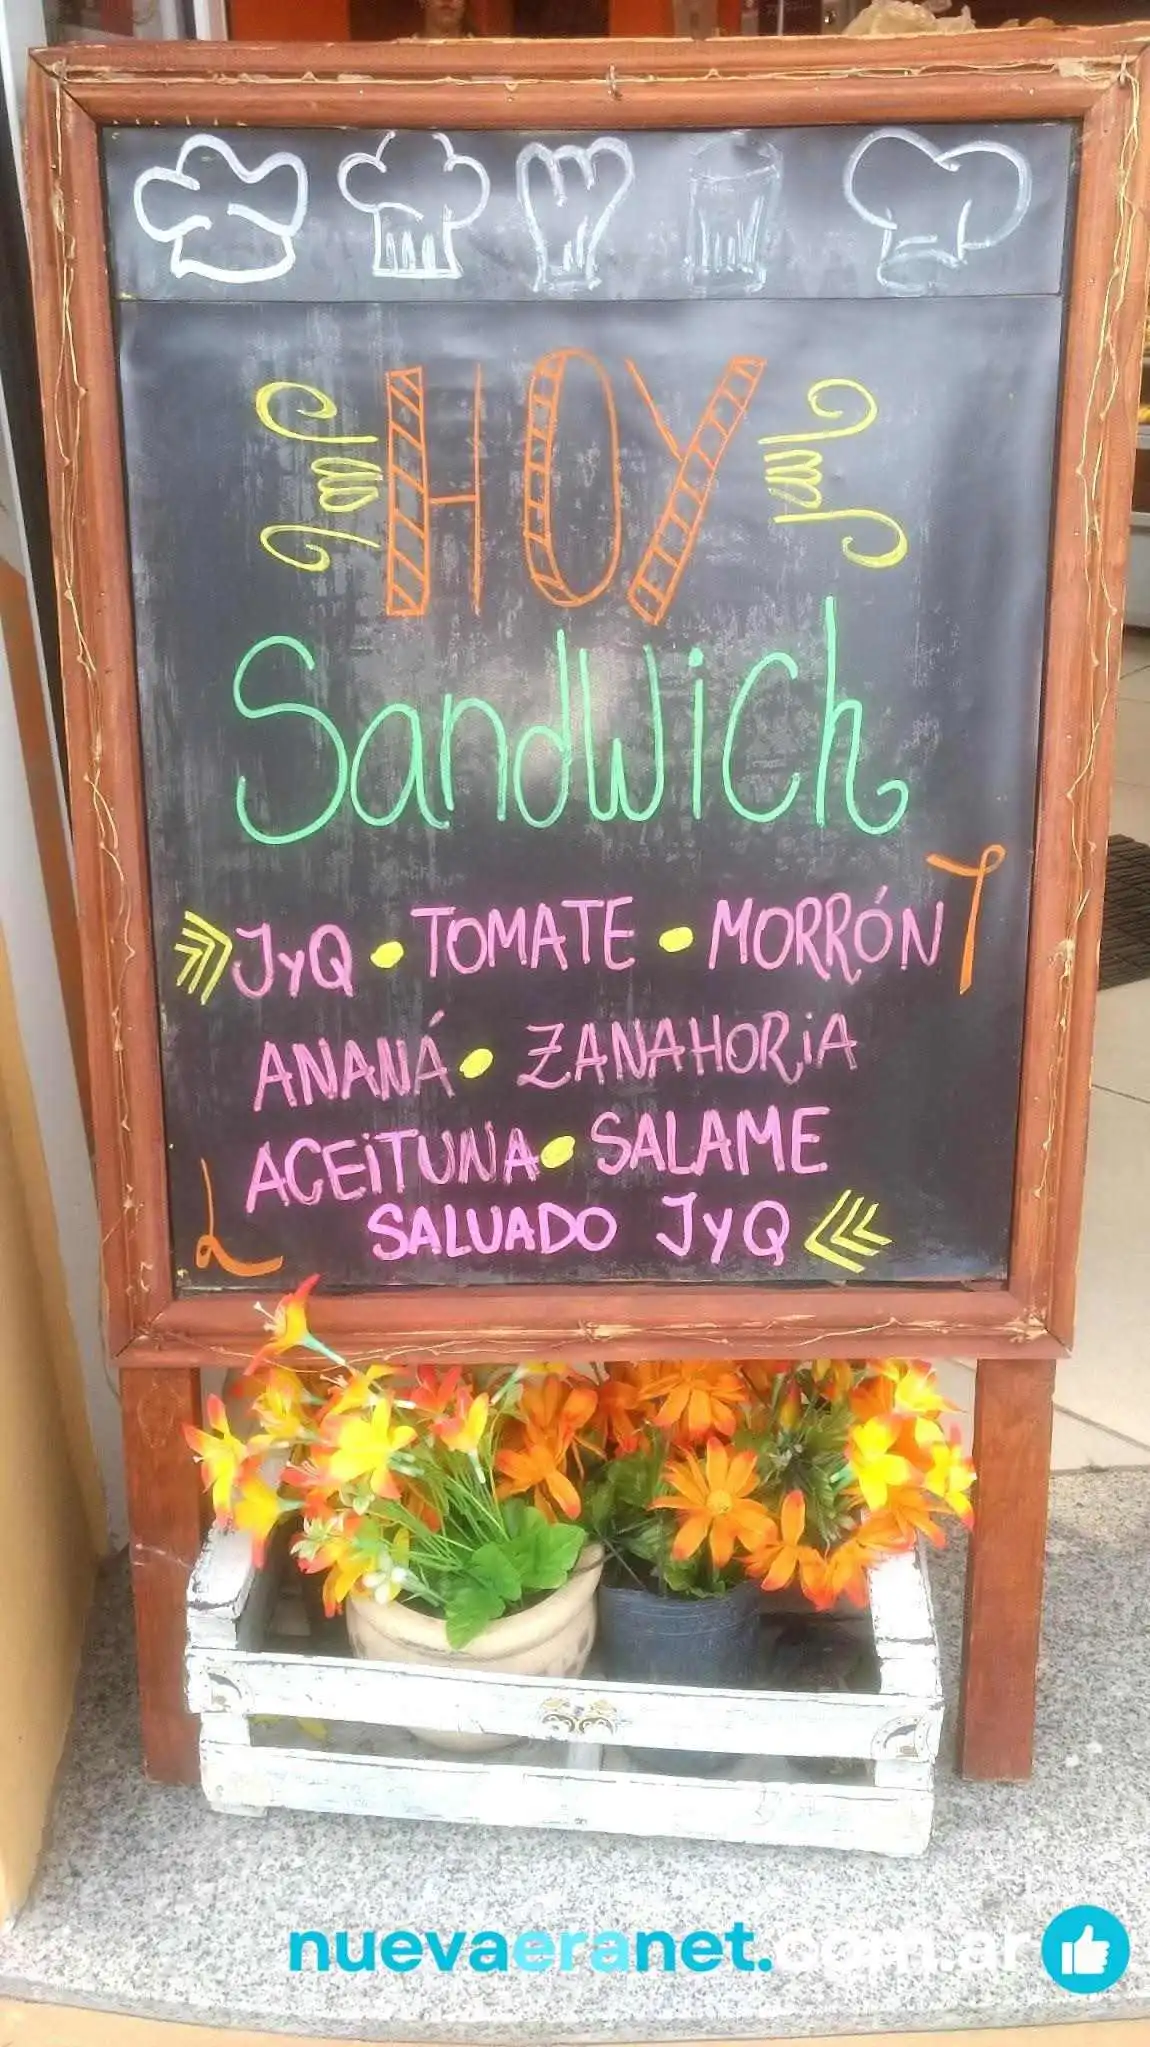 HOY
Sandwich
JyQ • TOMATE • MORRÓN
ANANÁ • ZANAHORiA
ACEiTUNA • SALAME
SALVADO JyQ
nuevaeranet.com.ar